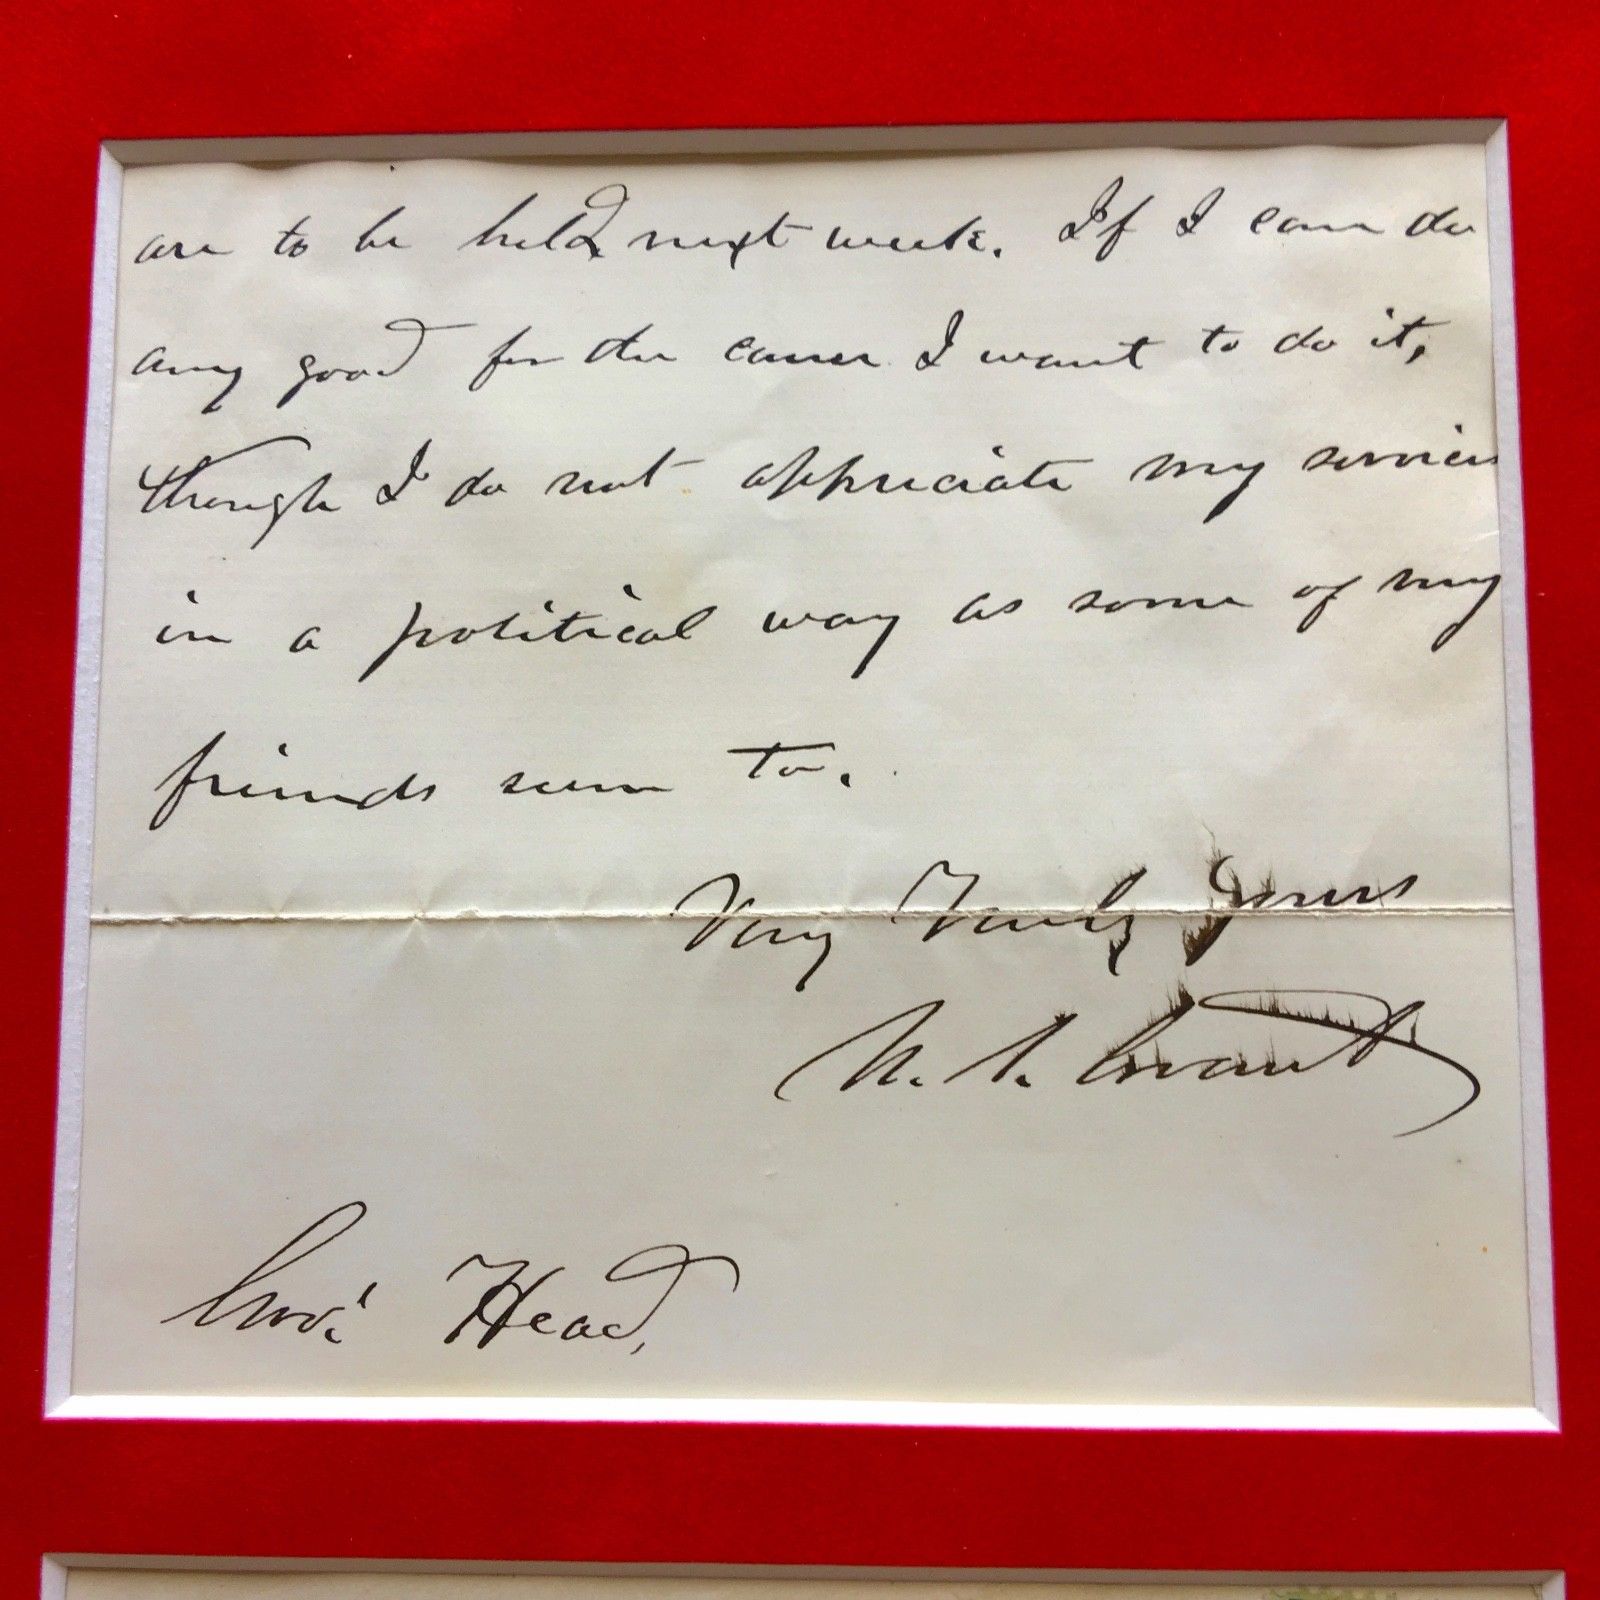 are to be held next week. If I can do
any good for the cause I want to do it,
though I do not appreciate my services
in a political way as some of my
friends seem to.
Very Truly Yours
U. S. Grant
Gov. Head,